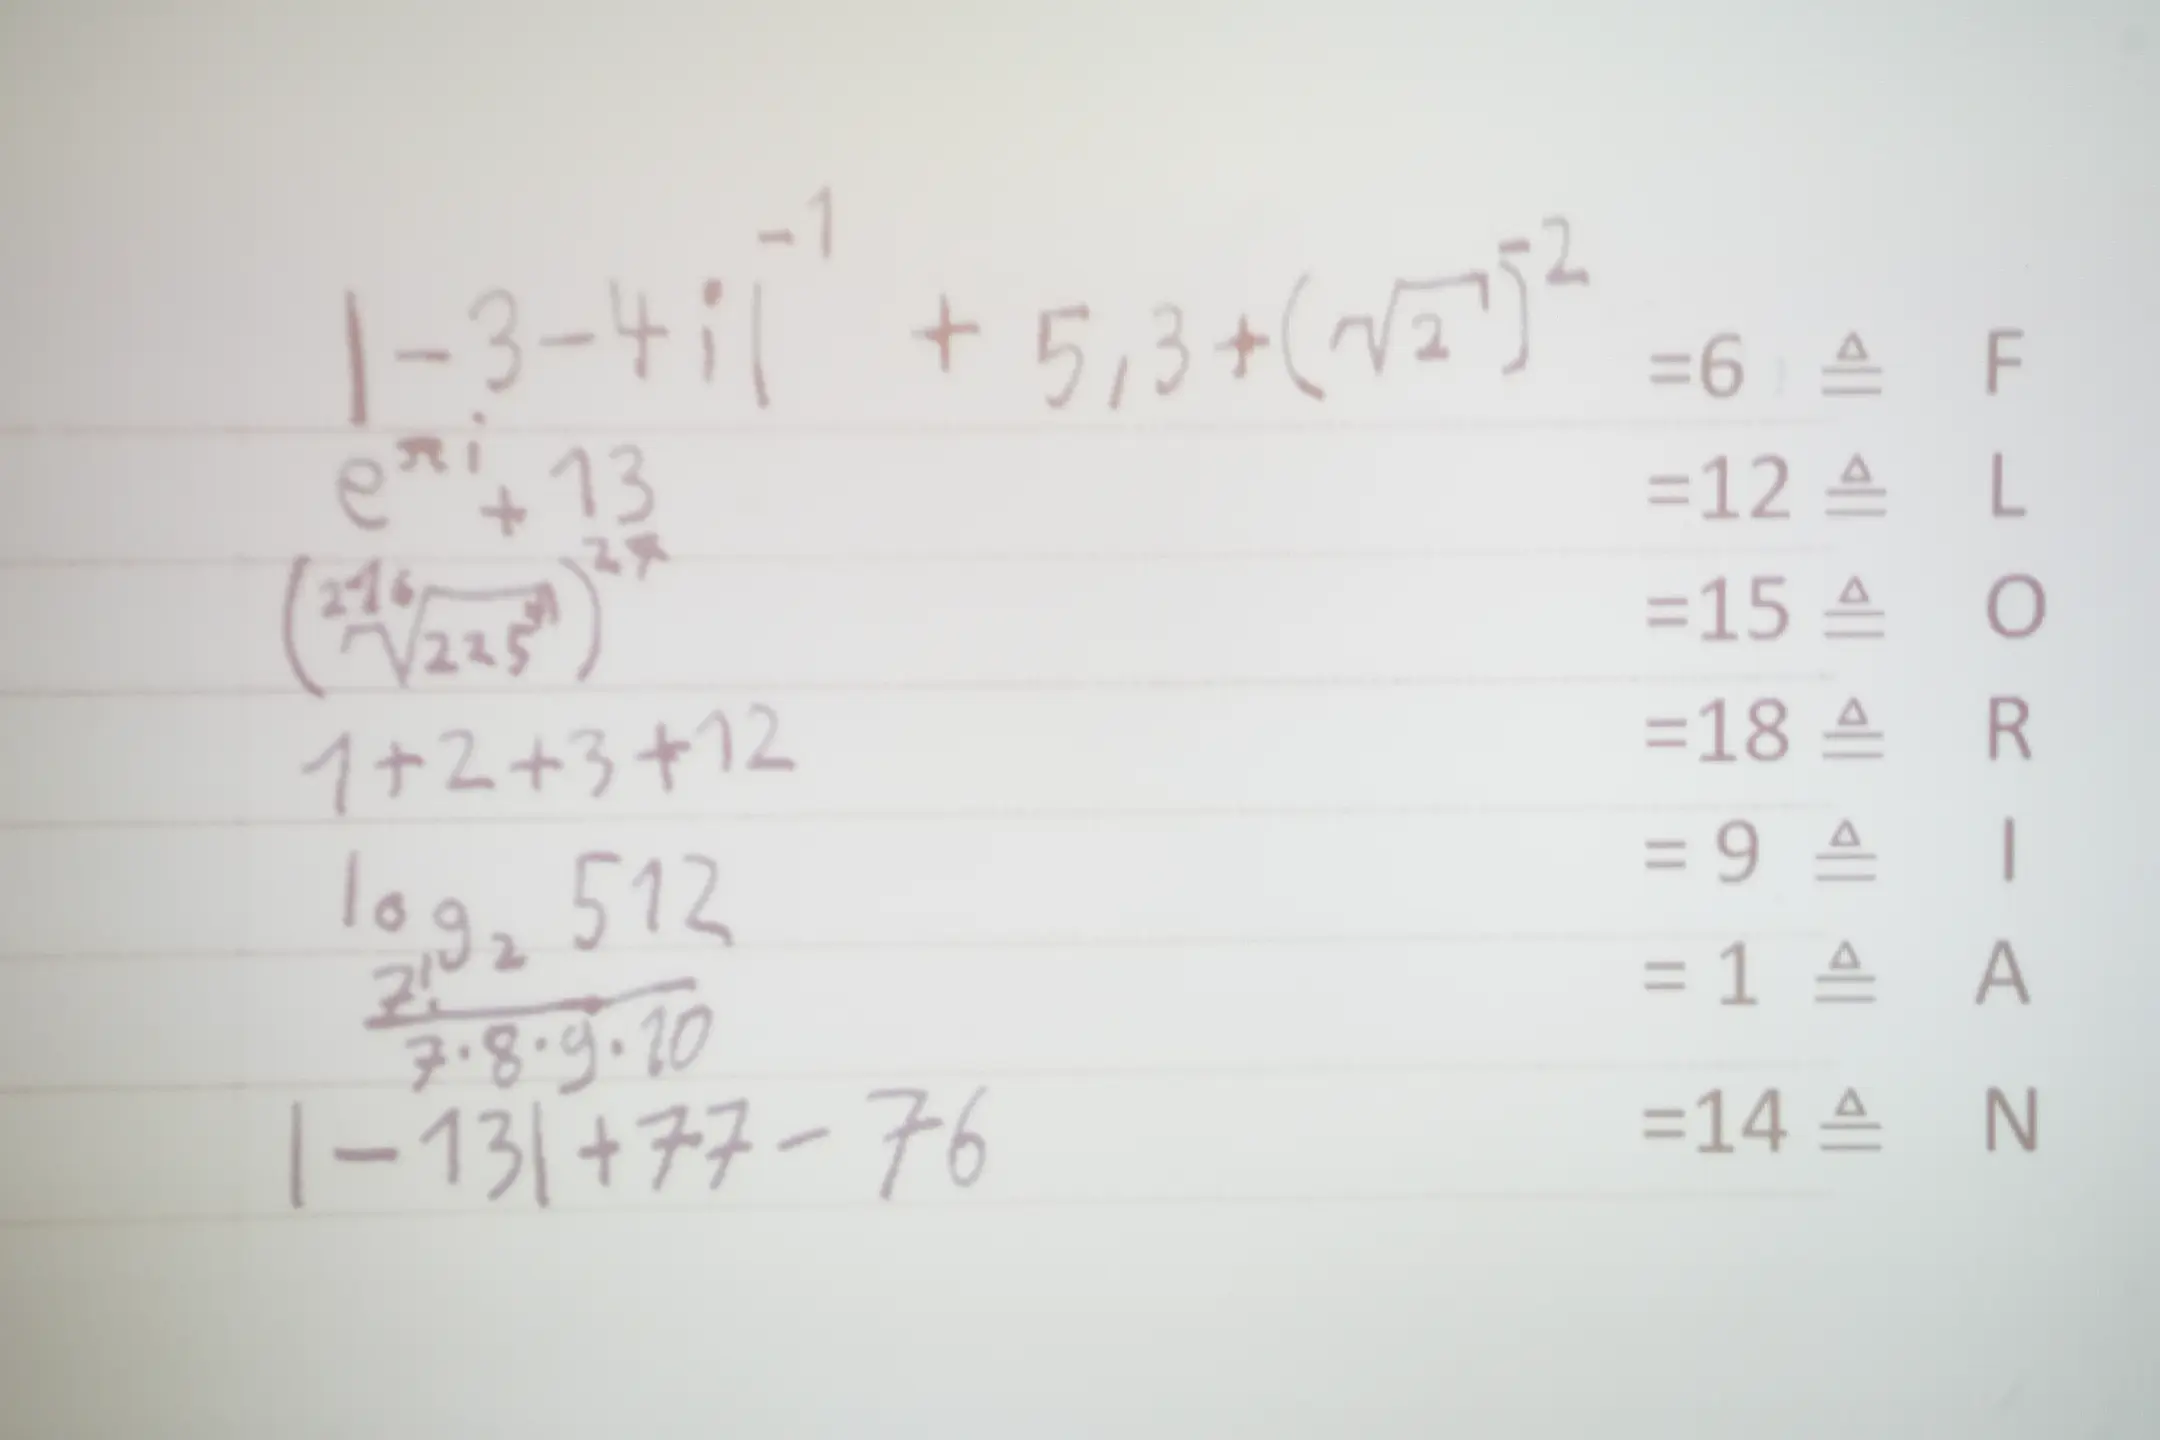 |-3-4i|⁻¹ + 5,3+(√2)⁻² =6 ≙ F
e^πi + 13 =12 ≙ L
=15 ≙ O
1+2+3+12 =18 ≙ R
log₂ 512 = 9 ≙ I
7!
7·8·9·10 = 1 ≙ A
|-13|+77-76 =14 ≙ N